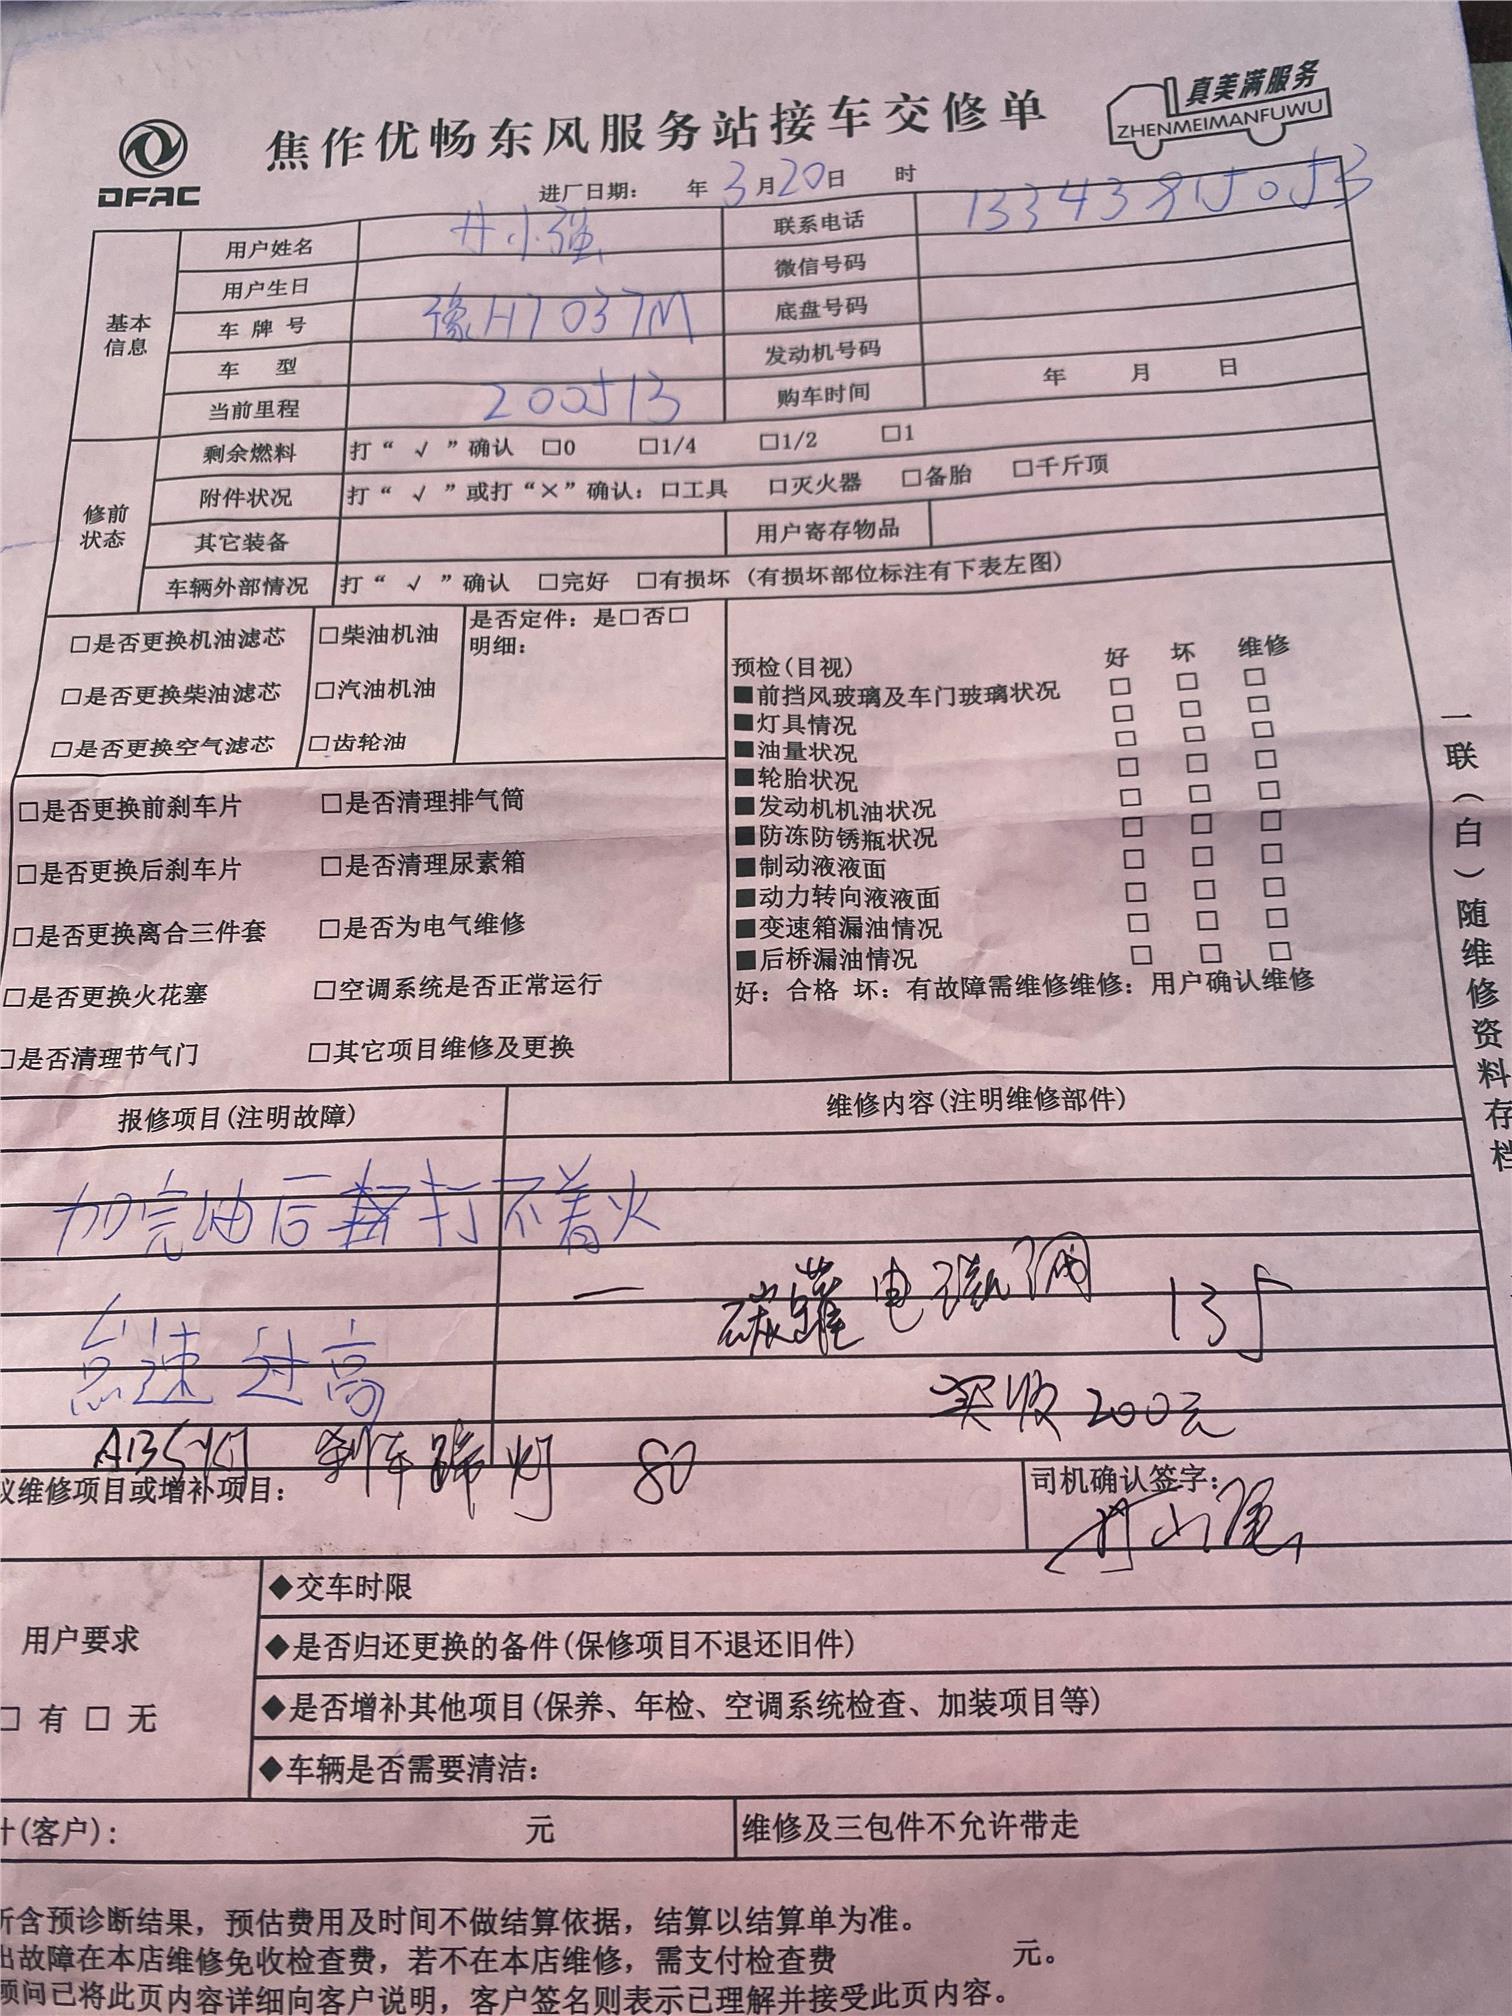 DFAC
焦作优畅东风服务站接车交修单
真美满服务
ZHENMEIMANFUWU
进厂日期: 年 3月20日 时
基本信息
用户姓名 小强 联系电话
用户生日 微信号码
车牌号 豫H7037M 底盘号码
车型 发动机号码
当前里程 200513 购车时间 年 月 日
修前状态
剩余燃料 打“√”确认 □0 □1/4 □1/2 □1
附件状况 打“√”或打“×”确认: □工具 □灭火器 □备胎 □千斤顶
其它装备 用户寄存物品
车辆外部情况 打“√”确认 □完好 □有损坏 (有损坏部位标注有下表左图)
□是否更换机油滤芯 □柴油机油 是否定件: 是□否□
明细:
□是否更换柴油滤芯 □汽油机油
□是否更换空气滤芯 □齿轮油
□是否更换前刹车片 □是否清理排气筒
□是否更换后刹车片 □是否清理尿素箱
□是否更换离合三件套 □是否为电气维修
□是否更换火花塞 □空调系统是否正常运行
□是否清理节气门 □其它项目维修及更换
预检(目视) 好 坏 维修
■前挡风玻璃及车门玻璃状况 □ □ □
■灯具情况 □ □ □
■油量状况 □ □ □
■轮胎状况 □ □ □
■发动机机油状况 □ □ □
■防冻防锈瓶状况 □ □ □
■制动液液面 □ □ □
■动力转向液液面 □ □ □
■变速箱漏油情况 □ □ □
■后桥漏油情况 □ □ □
好: 合格 坏: 有故障需维修维修: 用户确认维修
一联(白)随维修资料存档
报修项目(注明故障) 维修内容(注明维修部件)
加完油后 打不着火
一 碳罐电磁阀 135
怠速过高
实收200元
ABS灯 刹车蹄灯 80
议维修项目或增补项目: 司机确认签字:
用户要求
□有□无
◆交车时限
◆是否归还更换的备件(保修项目不退还旧件)
◆是否增补其他项目(保养、年检、空调系统检查、加装项目等)
◆车辆是否需要清洁:
计(客户): 元 维修及三包件不允许带走
所含预诊断结果，预估费用及时间不做结算依据，结算以结算单为准。
出故障在本店维修免收检查费，若不在本店维修，需支付检查费 元。
顾问已将此页内容详细向客户说明，客户签名则表示已理解并接受此页内容。